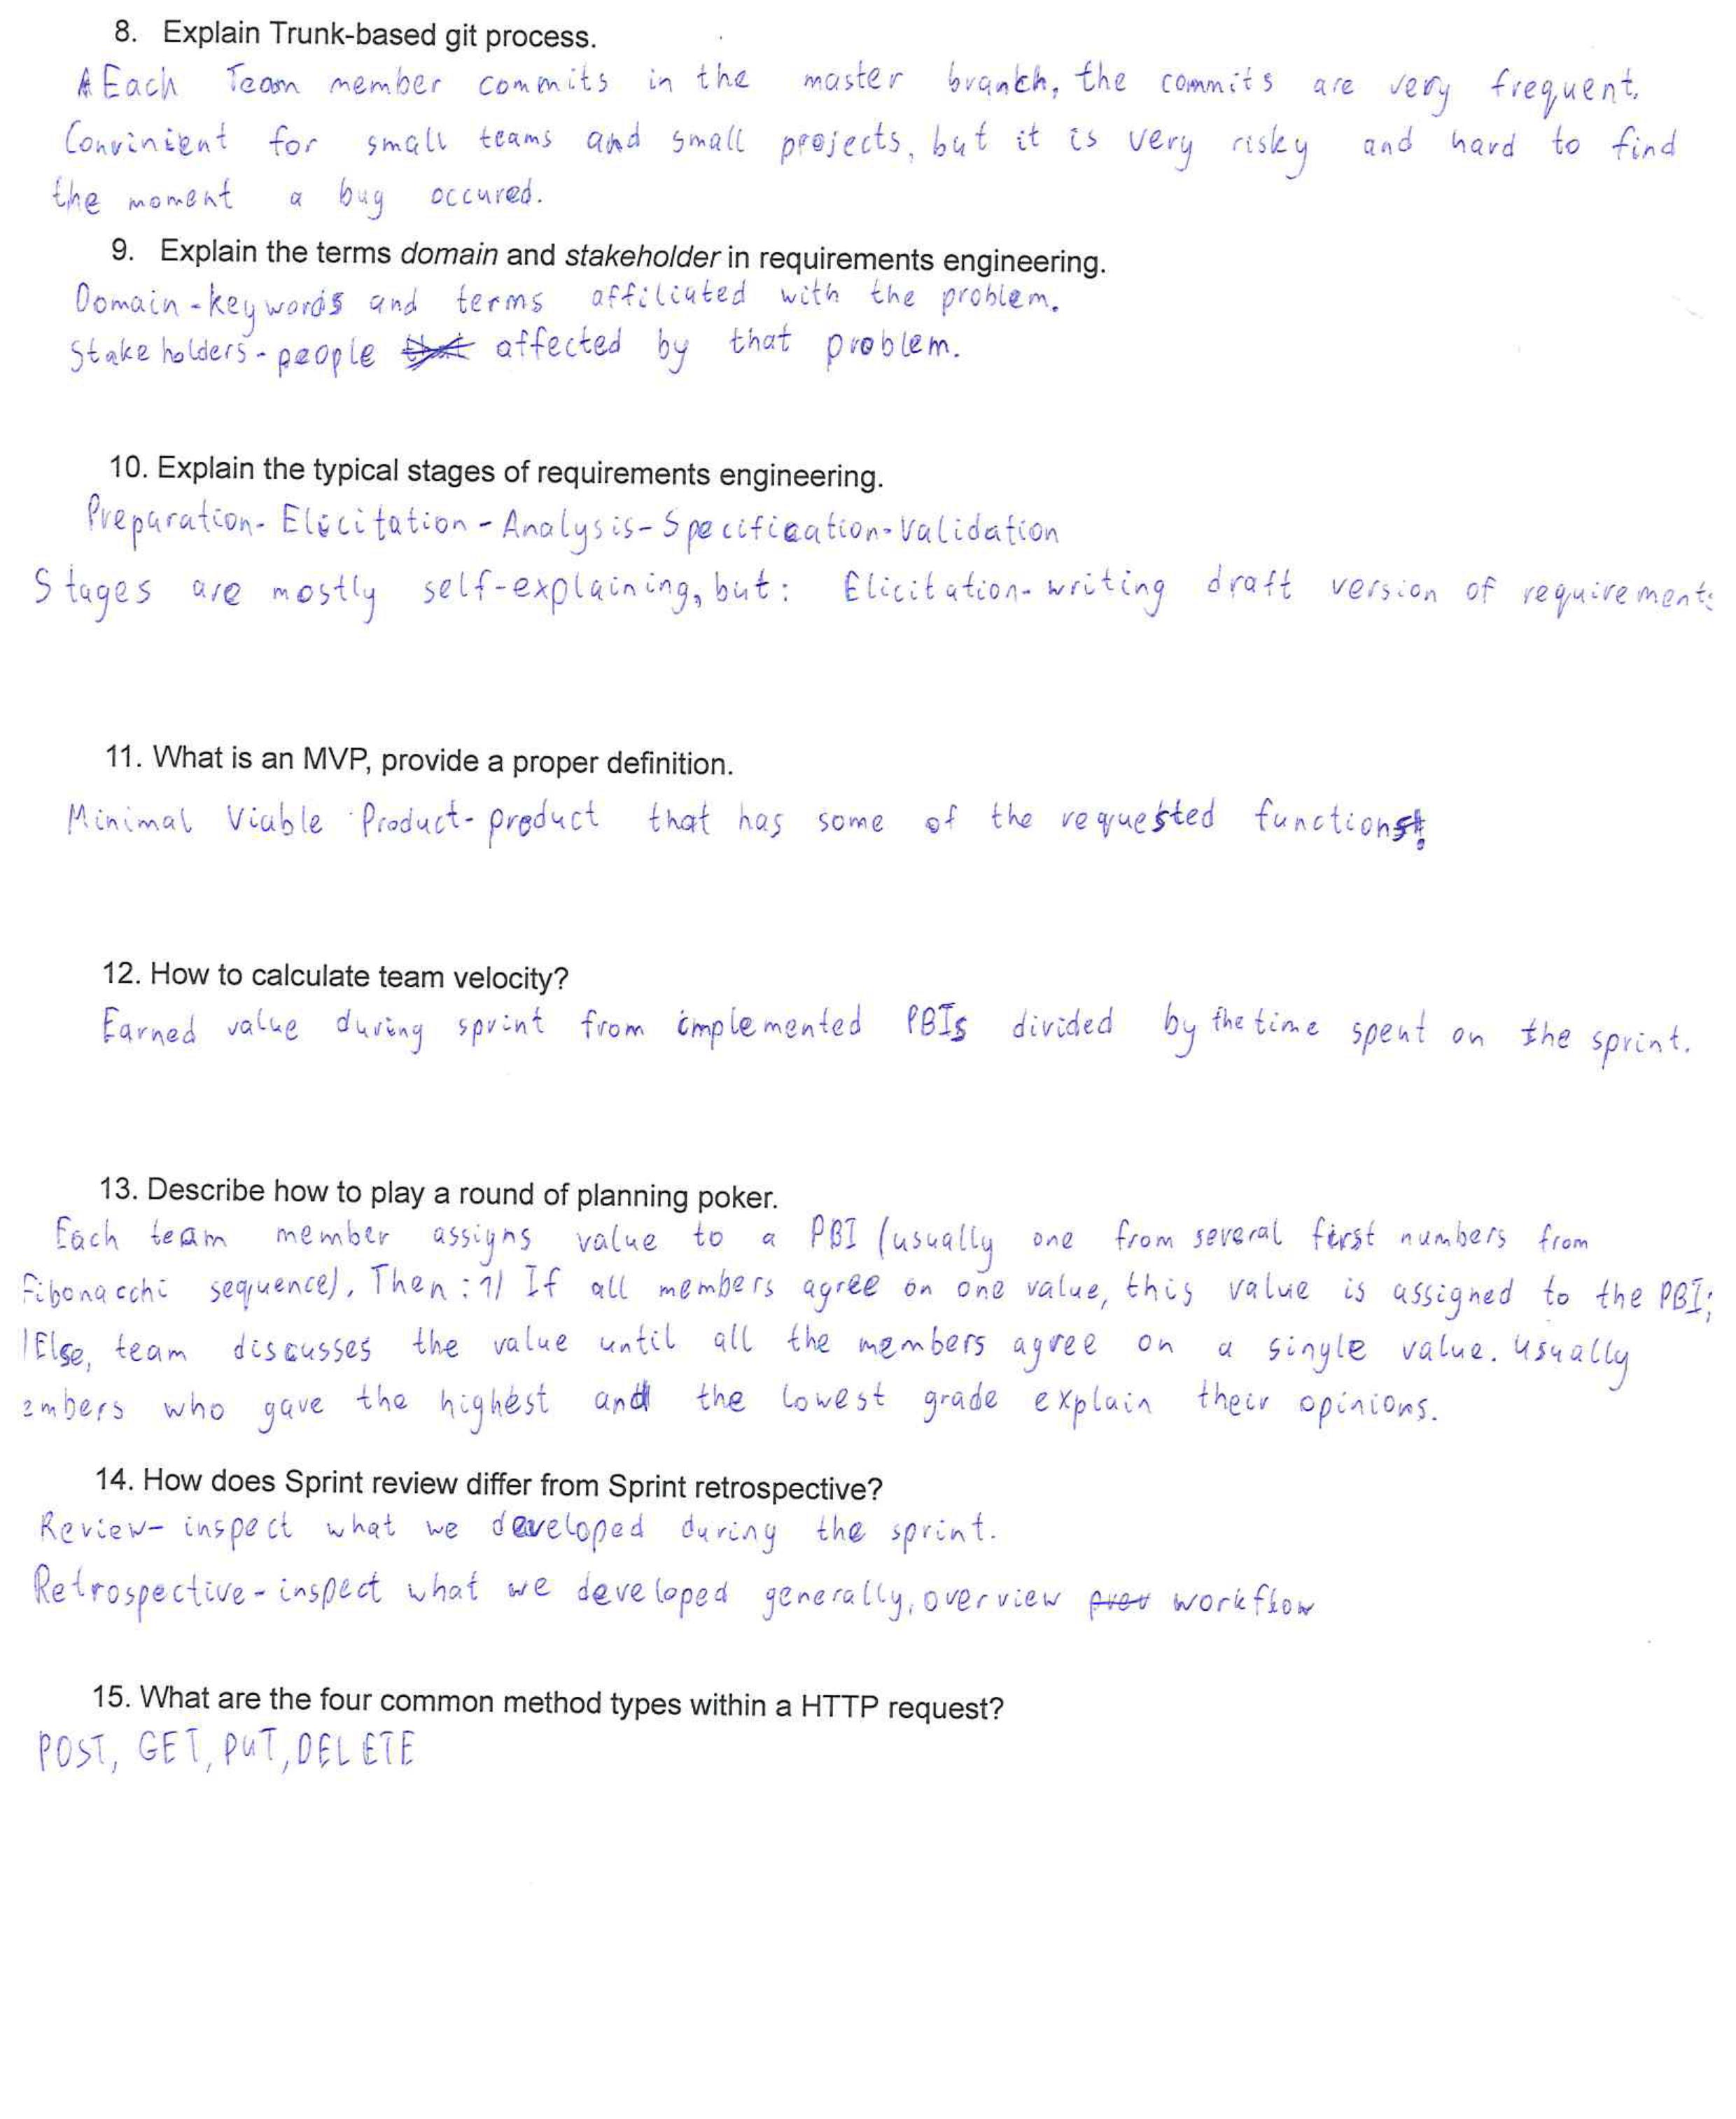 8. Explain Trunk-based git process.
Each Team member commits in the master branch, the commits are very frequent.
Convinient for small teams and small projects, but it is very risky and hard to find
the moment a bug occured.
9. Explain the terms domain and stakeholder in requirements engineering.
Domain - keywords and terms affiliated with the problem.
Stakeholders - people that affected by that problem.
10. Explain the typical stages of requirements engineering.
Preparation - Elicitation - Analysis - Specification - Validation
Stages are mostly self-explaining, but: Elicitation - writing draft version of requirements
11. What is an MVP, provide a proper definition.
Minimal Viable Product - product that has some of the requested functions.
12. How to calculate team velocity?
Earned value during sprint from implemented PBIs divided by the time spent on the sprint.
13. Describe how to play a round of planning poker.
Each team member assigns value to a PBI (usually one from several first numbers from
Fibonacchi sequence). Then: 1) If all members agree on one value, this value is assigned to the PBI;
) Else, team discusses the value until all the members agree on a single value. Usually
embers who gave the highest and the lowest grade explain their opinions.
14. How does Sprint review differ from Sprint retrospective?
Review - inspect what we developed during the sprint.
Retrospective - inspect what we developed generally, overview prev workflow
15. What are the four common method types within a HTTP request?
POST, GET, PUT, DELETE